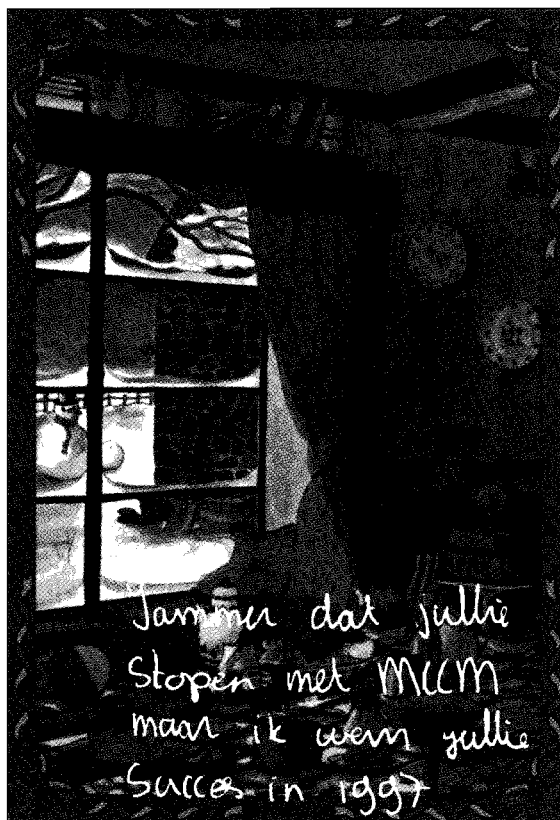 Jammer dat jullie
Stopen met MCCM
maar ik wens jullie
Succes in 1997